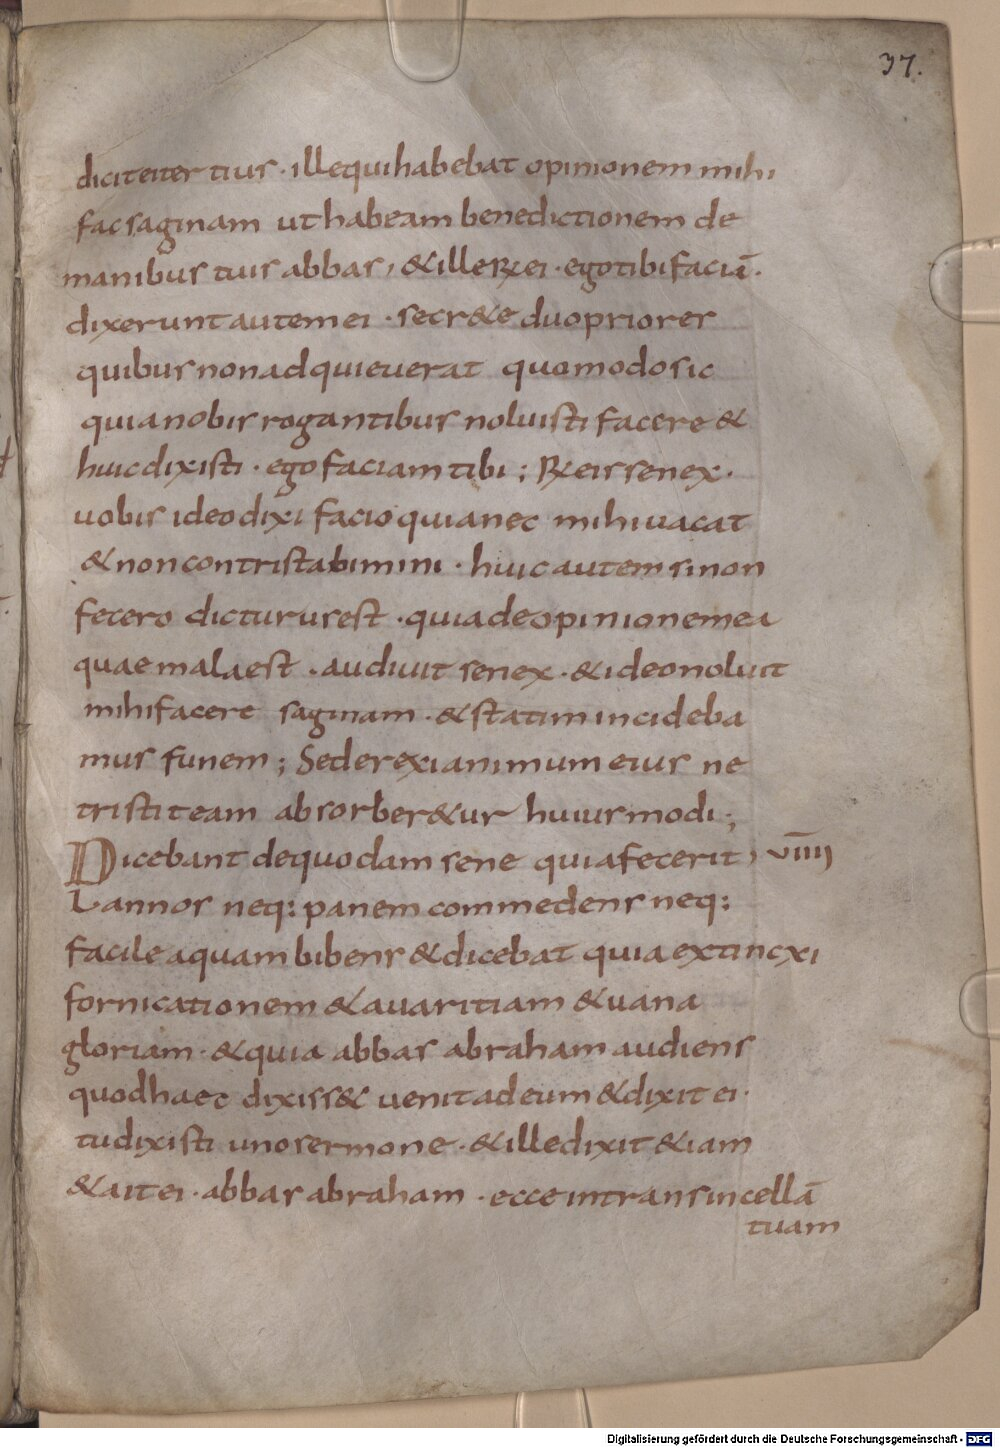 37.
dicit ei tertius · ille qui habebat opinionem mihi
fac saginam ut habeam benedictionem de
manibus tuis abbas, & ille R ei · ego tibi faciā.
dixerunt autem ei · secr&e duo priores
quibus non adquieuerat quomodo sic
quia nobis rogantibus noluisti facere &
huic dixisti · ego faciam tibi ; R eis senex.
uobis ideo dixi facio quia nec mihi uacat
& non contristabimini · huic autem si non
fecero dicturus est · quia de opinione mea
quae mala est · audiuit senex · & ideo noluit
mihi facere saginam · & statim incideba
mus funem ; Sed erexi animum eius ne
tristiteam absorber&ur huiusmodi ;
Dicebant de quodam sene quia fecerit, VIIII
L annos neq: panem commedens neq:
facile aquam bibens & dicebat quia extincxi
fornicationem & auaritiam & uana
gloriam · & quia abbas abraham audiens
quod haec dixiss& uenit ad eum & dixit ei ·
tu dixisti uno sermone · & ille dixit & iam
& ait ei · abbas abraham · ecce intrans in cellā
tuam
Digitalisierung gefördert durch die Deutsche Forschungsgemeinschaft - DFG